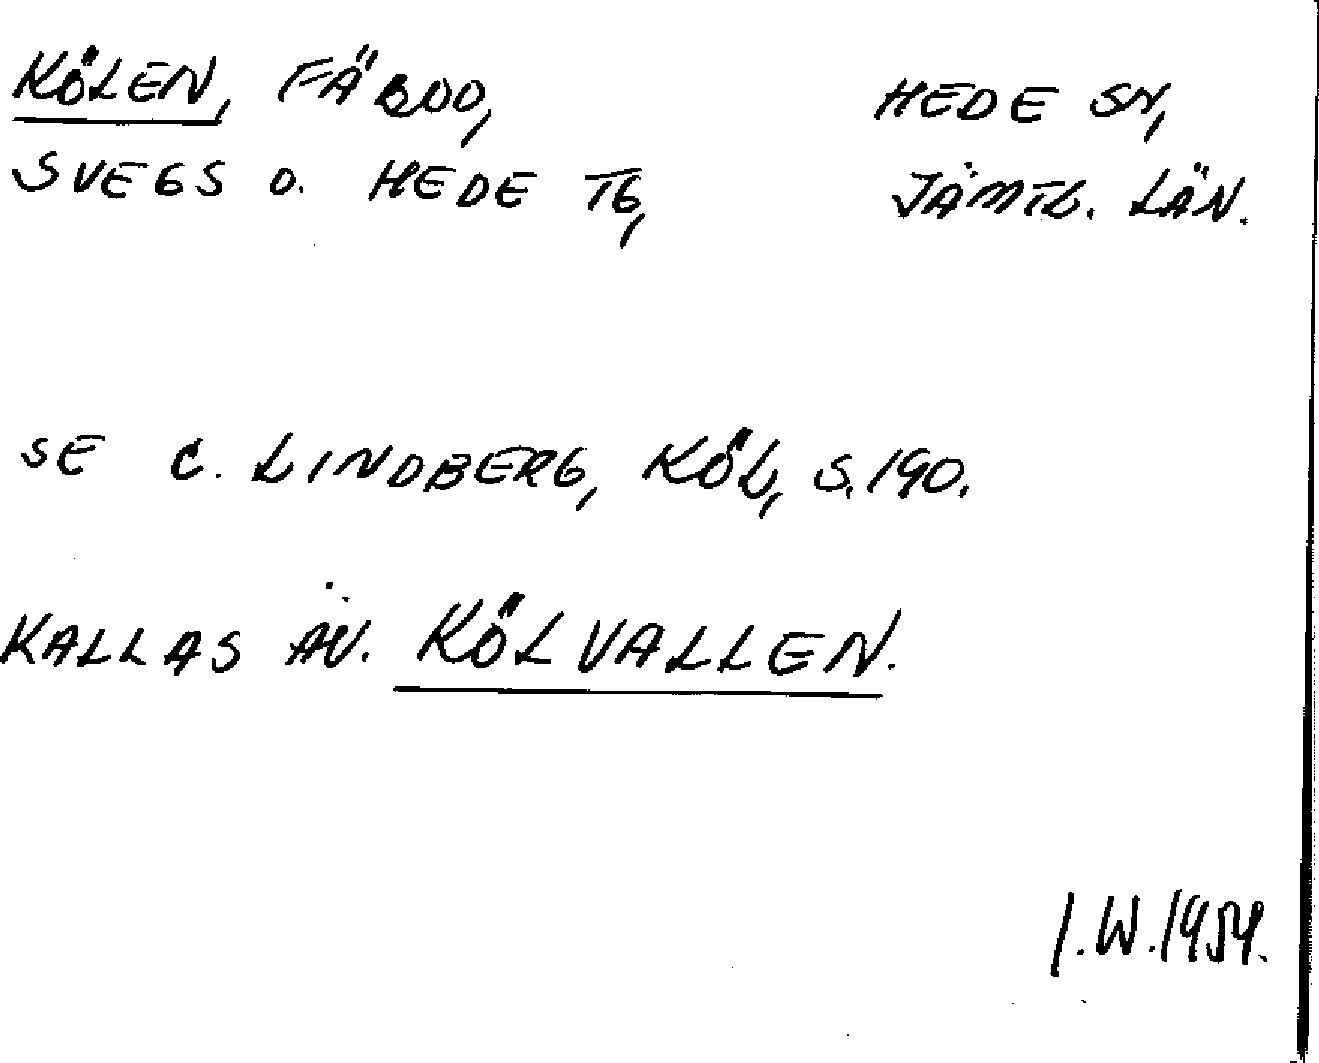 KÖLEN, FÄBOD, HEDE SN,
SVEGS O. HEDE TG, JÄMTL. LÄN.
SE C. LINDBERG, KÖL, S. 190.
KALLAS ÄV. KÖLVALLEN.
I.W. 1954.